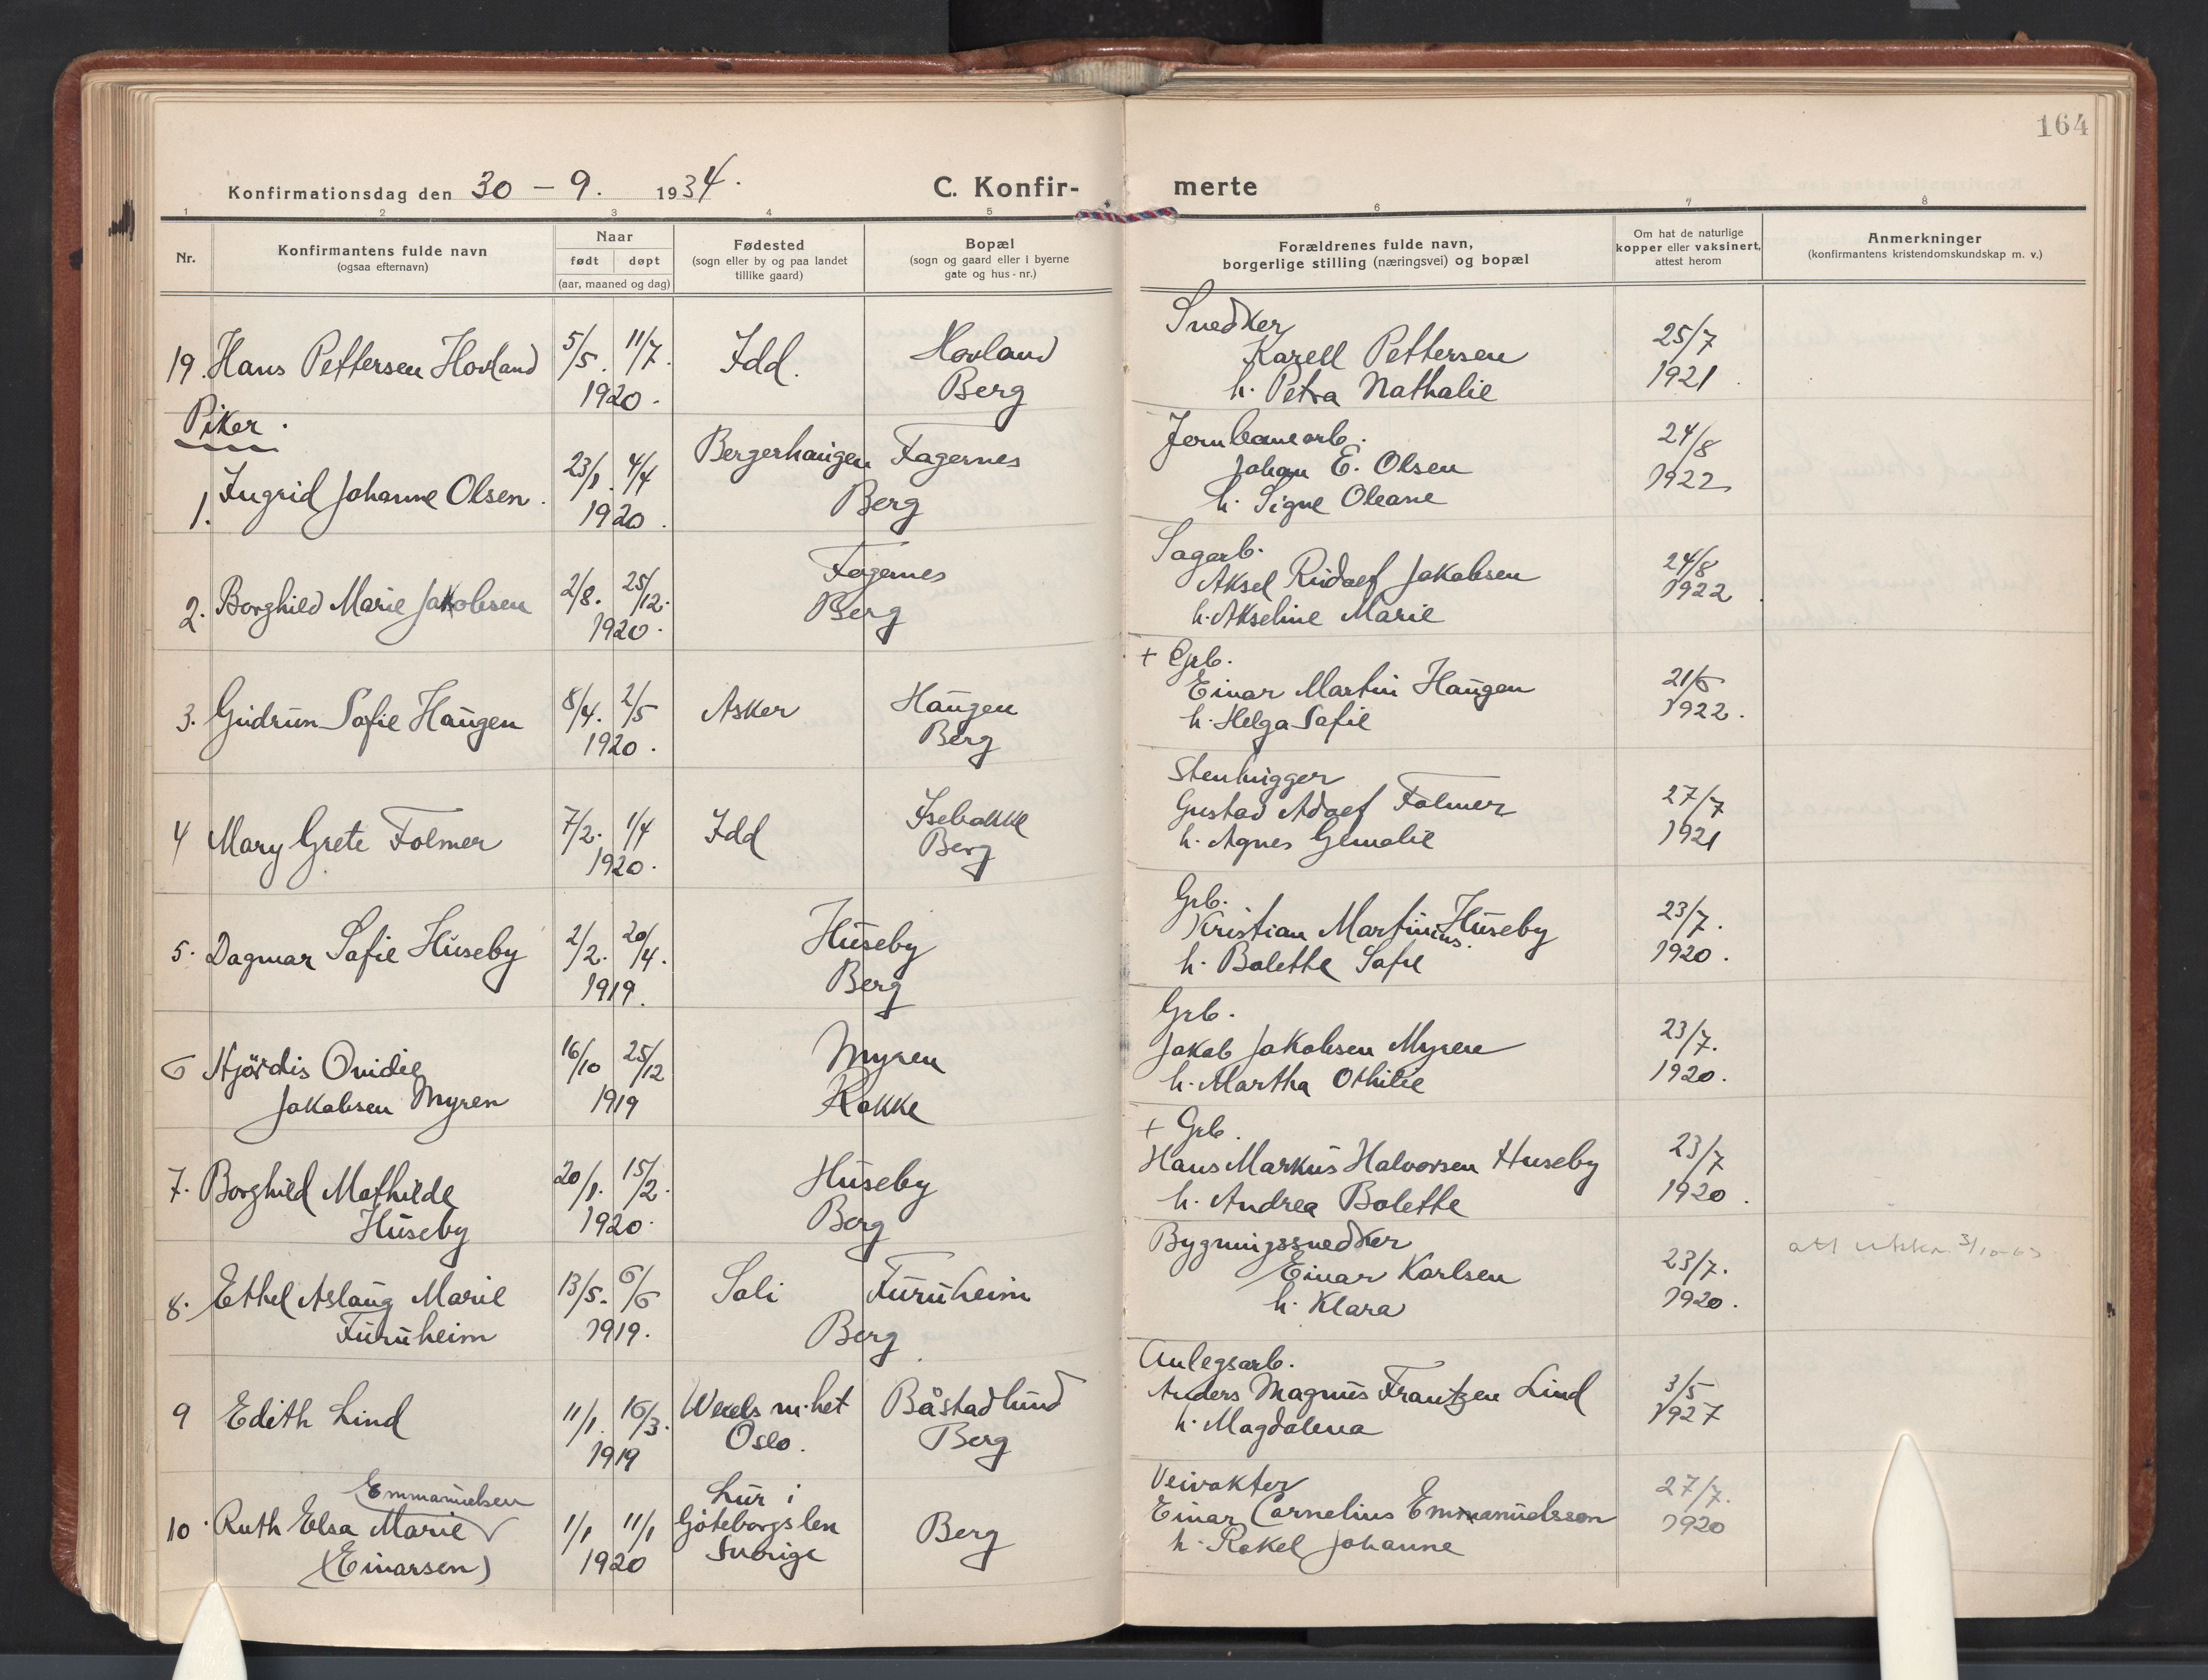 164
Konfirmationsdag den 30 - 9. 1934.
C. Konfir- merte
1 2 3 4 5 6 7 8
Nr.
Konfirmantens fulde navn
(ogsaa efternavn)
Naar
født døpt
(aar, maaned og dag)
Fødested
(sogn eller by og paa landet
tillike gaard)
Bopæl
(sogn og gaard eller i byerne
gate og hus-nr.)
Forældrenes fulde navn,
borgerlige stilling (næringsvei) og bopæl
Om hat de naturlige
kopper eller vaksinert,
attest herom
Anmerkninger
(konfirmantens kristendomskundskap m. v.)
19. Hans Pettersen Hovland
5/5. 11/7.
1920.
Idd.
Hovland
Berg
Snedker
Karell Pettersen
h. Petra Nathalie
25/7
1921
Piker.
1. Ingrid Johanne Olsen.
23/1. 4/4
1920.
Bergerhaugen Fagernes
Berg
Jernbanearb.
Johan E. Olsen
h. Signe Oleane
24/8
1922
2. Borghild Marie Jakobsen
2/8. 25/12.
1920.
Fagernes
Berg
Sagarb.
Aksel Rudolf Jakobsen
h. Akseline Marie
24/8
1922
3. Gudrun Sofie Haugen
8/4. 2/5
1920.
Asker
Haugen
Berg
+ Grb.
Einar Martin Haugen
h. Helga Sofie
21/6
1922.
4 Mary Grete Folmer
7/2. 1/4
1920.
Idd
Isebakke
Berg
Stenhugger
Gustav Adolf Folmer
h. Agnes Gemalie
27/7
1921
5. Dagmar Sofie Huseby
2/2. 20/4.
1919.
Huseby
Berg
Grb.
Kristian Martinius Huseby
h. Bolette Sofie
23/7.
1920.
6 Hjördis Ovidie
Jakobsen Myren
16/10 25/12
1919
Myren
Rokke
Grb.
Jakob Jakobsen Myren
h. Martha Othilie
23/7.
1920.
7. Borghild Mathilde
Huseby
20/1. 15/2.
1920.
Huseby
Berg
+ Grb.
Hans Markus Halvorsen Huseby
h. Andrea Bolette
23/7
1920.
8. Ethel Aslaug Marie
Furuheim
13/5. 6/6
1919.
Soli Furuheim
Berg
Bygningssnedker
Einar Karlsen
h. Klara
23/7.
1920.
att utskr.
9 Edith Lind
11/1. 16/3.
1919
m.het
Oslo.
Båstadlund
Berg
Anlegsarb.
Anders Magnus Frantzen Lind
h. Magdalena
3/5
1927
Emmanuelsen
10. Ruth Elsa Marie
(Einarsen)
1/1 11/1
1920
Lur i
Göteborgs len
Sverige
Berg
Veivokter
Einar Cornelius Emmanuelsson
h. Rakel Johanne
27/7.
1920